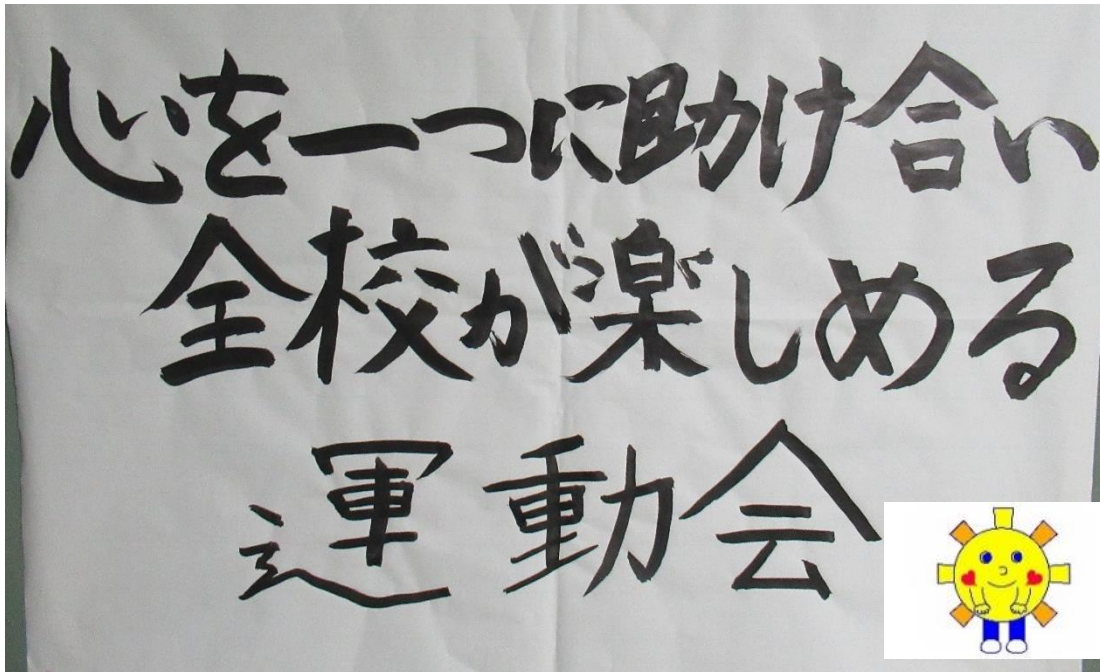 心を一つに助け合い
全校が楽しめる
運動会